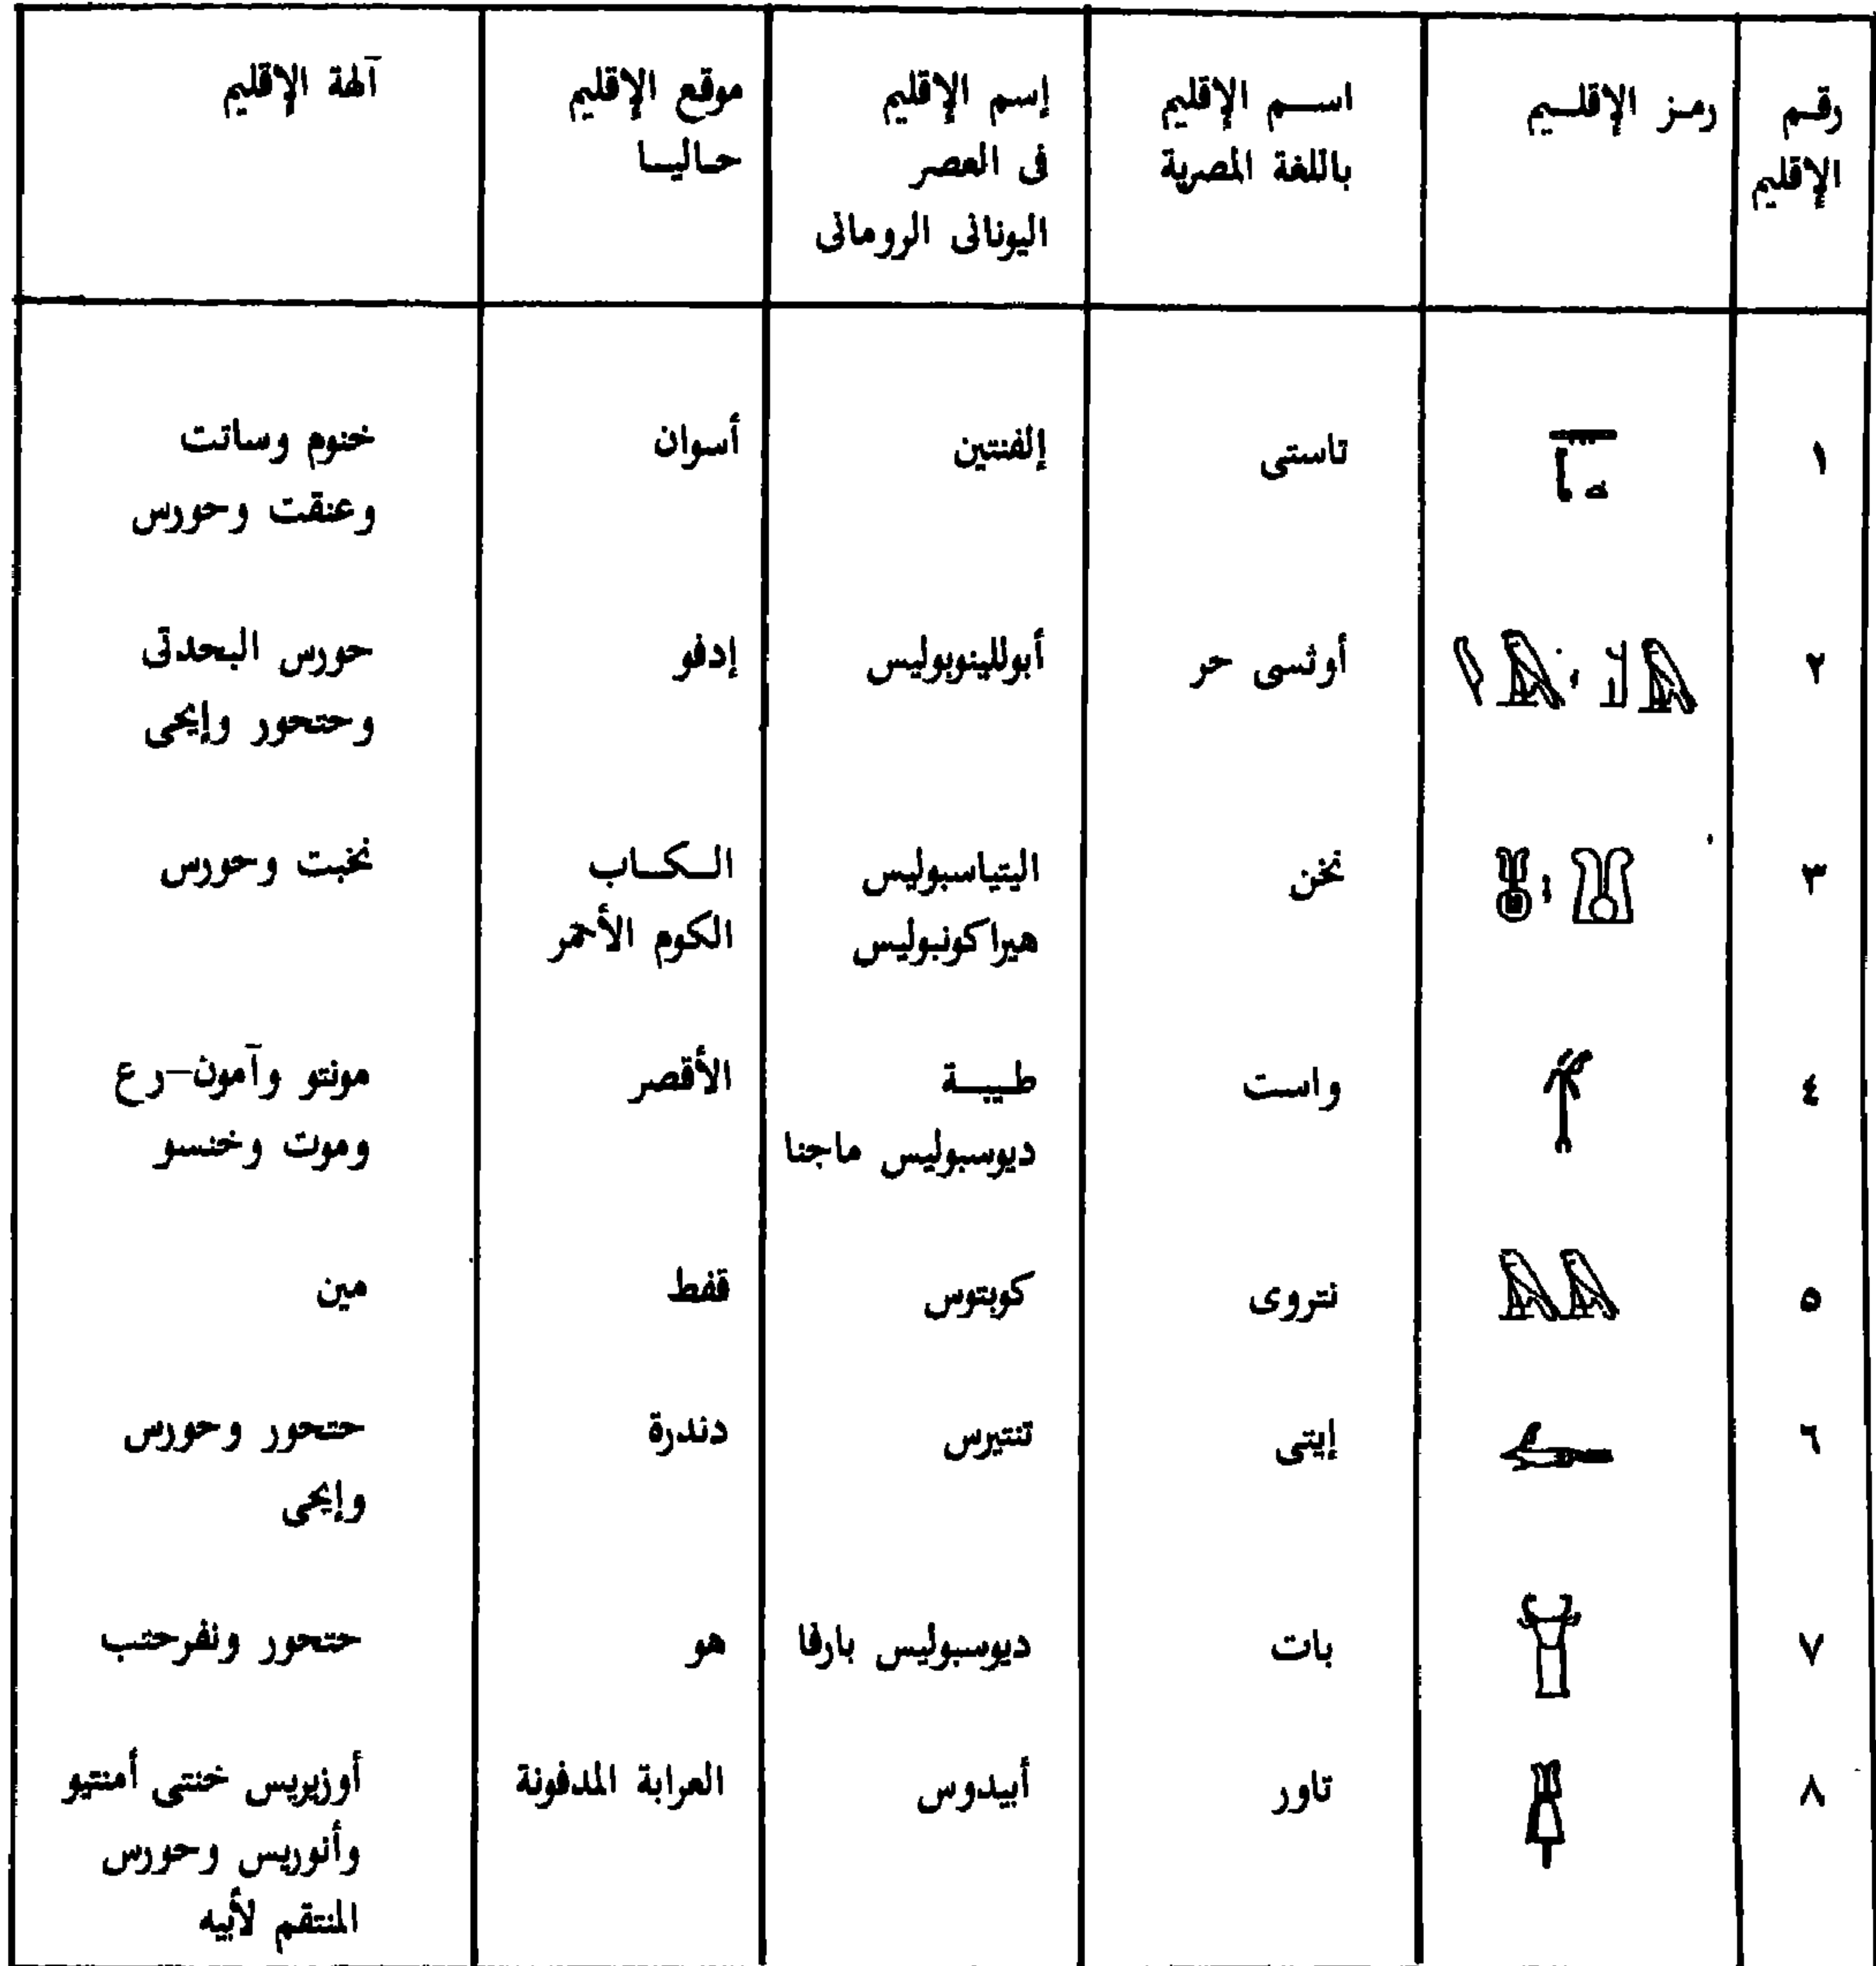 رقم الإقليم | رمز الإقليم | اسم الإقليم باللغة المصرية | إسم الإقليم فى العصر اليونانى الرومانى | موقع الإقليم حاليا | آلهة الإقليم
١ | تاستى | إلفنتين | أسوان | خنوم وساتت وعنقت وحورس
٢ | أوثسى حر | أبوللينوبوليس | إدفو | حورس البحدتى وحتحور وإيحى
٣ | نخن | اليتياسبوليس هيراكونبوليس | الكاب الكوم الأحمر | نخبت وحورس
٤ | واست | طيبة ديوسبوليس ماجنا | الأقصر | مونتو وآمون-رع وموت وخنسو
٥ | نتروى | كوبتوس | قفط | مين
٦ | إيتى | تنتيرس | دندرة | حتحور وحورس وإيحى
٧ | بات | ديوسبوليس بارفا | هو | حتحور ونفرحتب
٨ | تاور | أبيدوس | العرابة المدفونة | أوزيريس خنتى أمنتيو وأنوريس وحورس المنتقم لأبيه